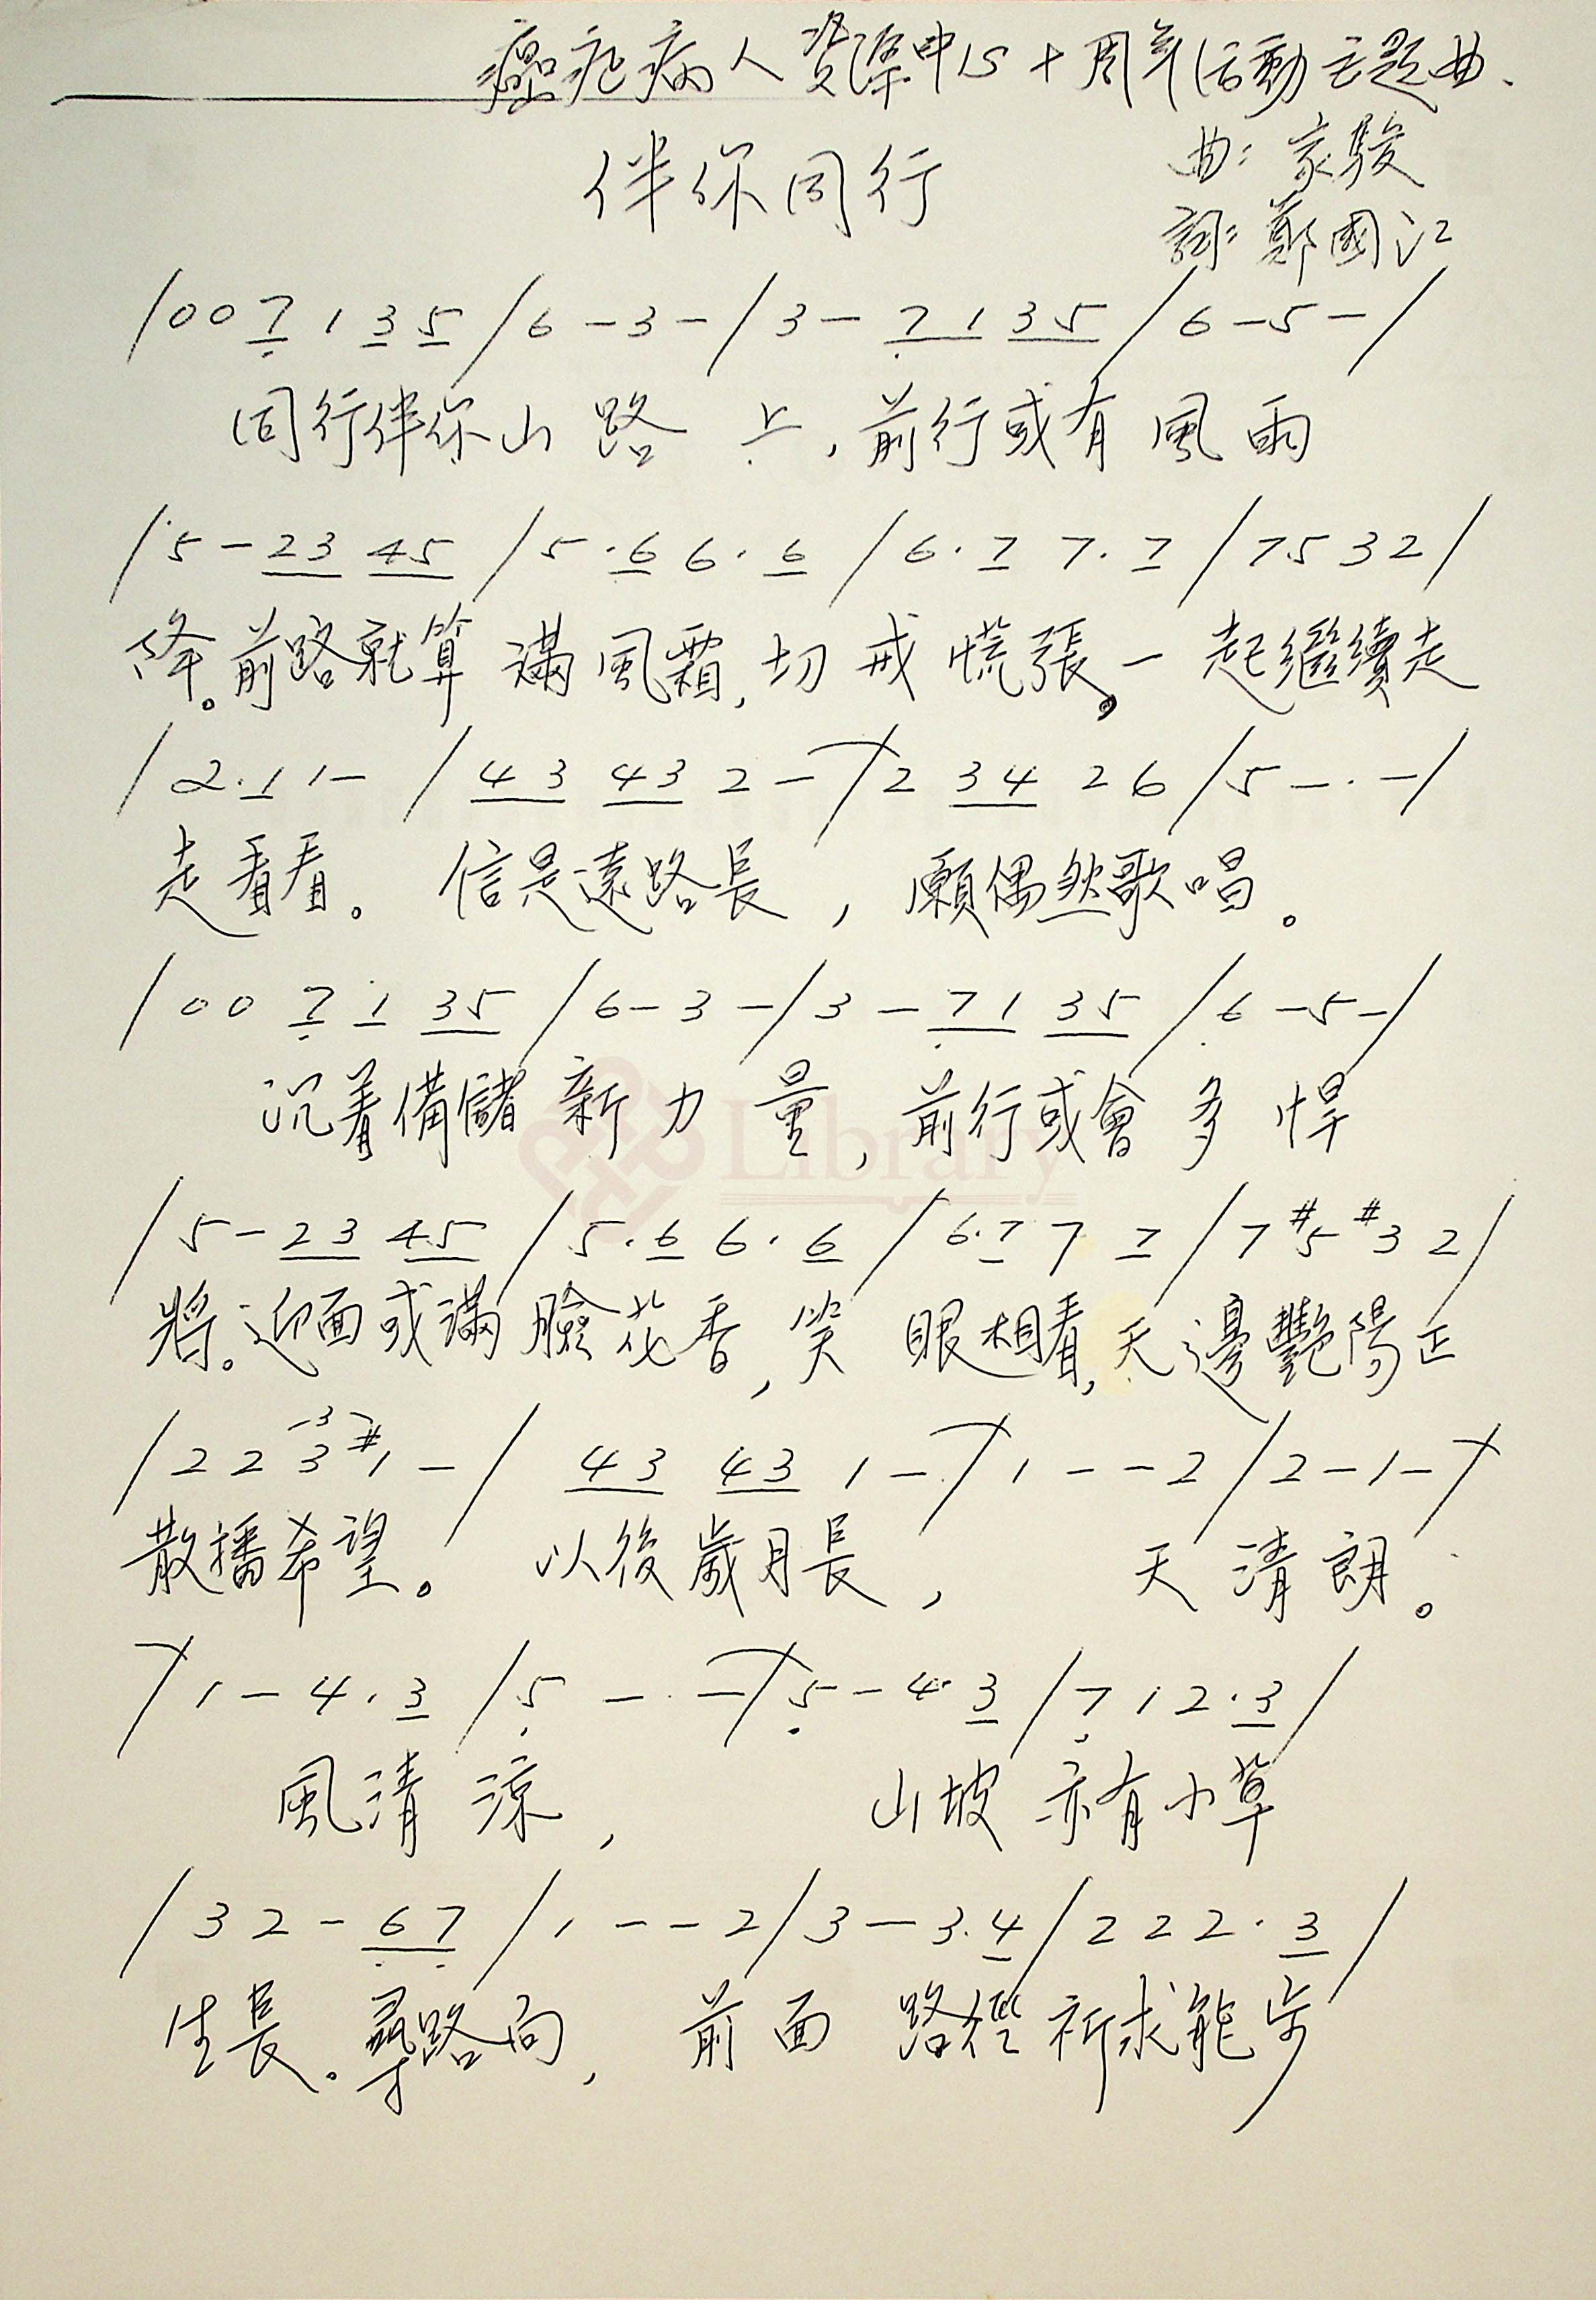 癌症病人資源中心十周年活動主題曲.
伴你同行
曲: 家駿
詞: 鄭國江
/ 0 0 7 1 3 5 / 6 - 3 - / 3 - 7 1 3 5 / 6 - 5 - /
同行伴你山路上,前行或有風雨
/ 5 - 2 3 4 5 / 5 . 6 6 . 6 / 6 . 7 7 . 7 / 7 5 3 2 /
降。前路就算滿風霜,切戒慌張。一起繼續走
/ 2 . 1 1 - / 4 3 4 3 2 - / 2 3 4 2 6 / 5 - . - /
走看看。信是遠路長,願偶然歌唱。
/ 0 0 7 1 3 5 / 6 - 3 - / 3 - 7 1 3 5 / 6 - 5 - /
沉着備儲新力量,前行或會多悍
Library
/ 5 - 2 3 4 5 / 5 . 6 6 . 6 / 6 . 7 7 7 / 7 #5 #3 2 /
將。迎面或滿臉花香,笑眼相看,天邊艷陽正
/ 2 2 3 #1 - / 4 3 4 3 1 - / 1 - - 2 / 2 - 1 - /
散播希望。以後歲月長,天清朗。
/ 1 - 4 . 3 / 5 - . - / 5 - 4 . 3 / 7 1 2 . 3 /
風清涼,山坡亦有小草
/ 3 2 - 6 7 / 1 - - 2 / 3 - 3 . 4 / 2 2 2 . 3 /
生長。尋路向,前面路徑祈求能步